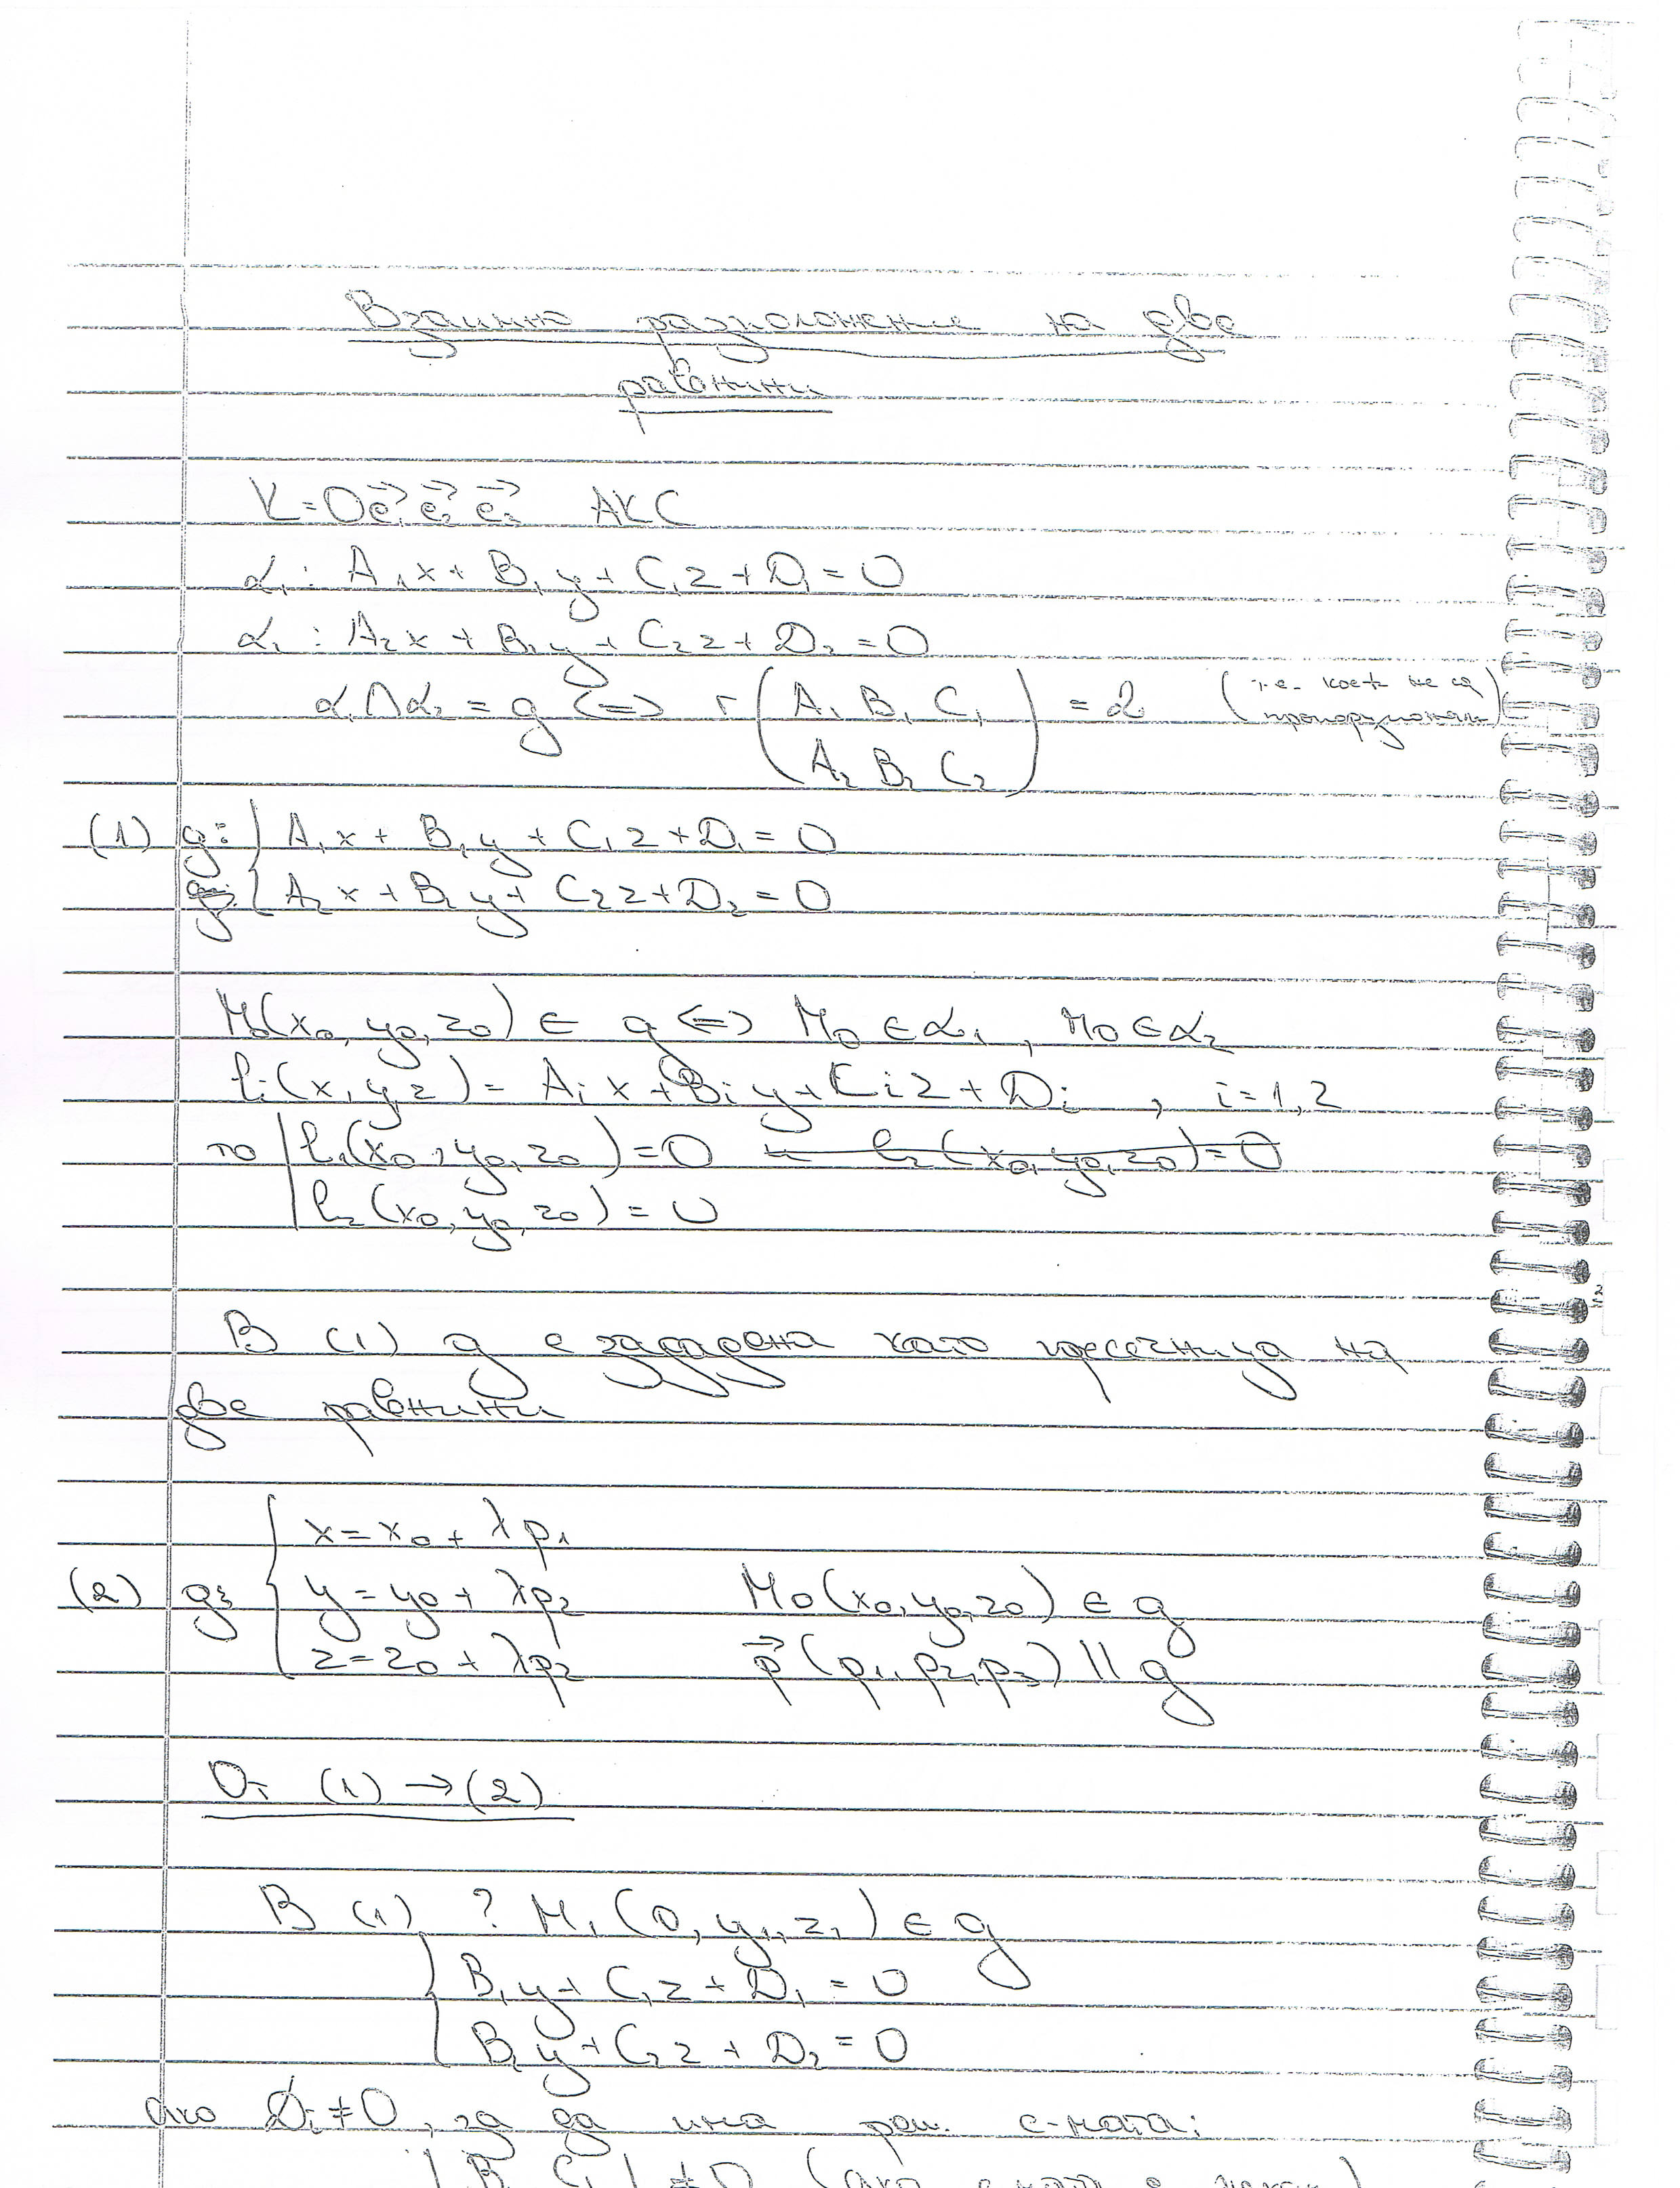 Взаимно разположение на две
равнини
K=Oe₁→ e₂→ e₃→ AKC
α₁: A₁x+B₁y+C₁z+D₁=0
α₂: A₂x+B₂y+C₂z+D₂=0
α₁∩α₂ = g <=> r(A₁ B₁ C₁ = 2 (т.е. коеф не са
A₂ B₂ C₂) пропорционални)
(1) g: { A₁x+B₁y+C₁z+D₁=0
A₂x+B₂y+C₂z+D₂=0
M₀(x₀,y₀,z₀) ∈ g <=> M₀∈α₁, M₀∈α₂
lᵢ(x,y,z)= Aᵢx+Bᵢy+Cᵢz+Dᵢ , i=1,2
то | l₁(x₀,y₀,z₀)=0 и l₂(x₀,y₀,z₀)=0
l₂(x₀,y₀,z₀)=0
В (1) g е зададена като пресечница на
две равнини
x=x₀+λp₁
(2) g: { y=y₀+λp₂ M₀(x₀,y₀,z₀) ∈ g
z=z₀+λp₂ p→(p₁,p₂,p₃) || g
От (1) →(2)
В (1) ? M₁(0,y₁,z₁) ∈ g
{ B₁y+C₁z+D₁=0
B₂y+C₂z+D₂=0
ако Dᵢ≠0, за да има реш. с-мата:
| B₁ C₁ | ≠0 (ако с-мата е